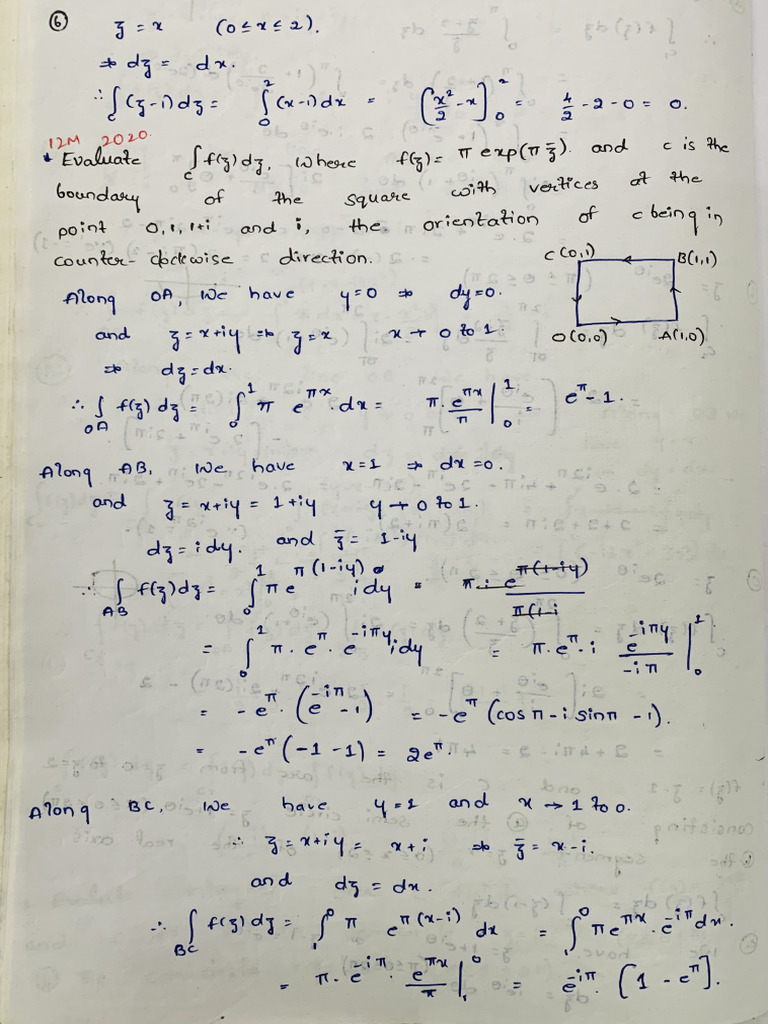 ⑥ z = x (0 ≤ x ≤ 2).
⇒ dz = dx.
∴ ∫_C (z-1) dz = ∫_0^2 (x-1) dx = (x²/2 - x]_0^2 = 4/2 - 2 - 0 = 0.
12M 2020.
* Evaluate ∫_C f(z) dz, where f(z) = π exp(π z̄). and c is the
boundary of the square with vertices at the
point 0, 1, 1+i and i, the orientation of c being in
counter-clockwise direction.
C (0,1) B(1,1)
O (0,0) A(1,0)
Along OA, We have y=0 ⇒ dy=0.
and z = x+iy ⇒ z = x x → 0 to 1.
⇒ dz = dx.
∴ ∫_OA f(z) dz = ∫_0^1 π e^{πx} . dx = π. e^{πx}/π |_0^1 = e^π - 1.
Along AB, We have x=1 ⇒ dx=0.
and z = x+iy = 1+iy y → 0 to 1.
dz = i dy. and z̄ = 1-iy
∴ ∫_AB f(z) dz = ∫_0^1 π e^{π(1-iy)} i dy = π i e^{π(1-iy)} / π(1-i
= ∫_0^1 π. e^π. e^{-iπy} i dy = π. e^π. i e^{-iπy}/-iπ |_0^1
= -e^π. (e^{-iπ} - 1) = -e^π (cos π - i sin π - 1).
= -e^π (-1 -1) = 2e^π.
Along BC, We have y=1 and x → 1 to 0.
∴ z = x+iy = x+i ⇒ z̄ = x-i.
and dz = dx.
∴ ∫_BC f(z) dz = ∫_1^0 π e^{π(x-i)} dx = ∫_1^0 π e^{πx}. e^{-iπ} dx.
= π. e^{-iπ}. e^{πx}/π |_1^0 = e^{-iπ}. [1 - e^π].